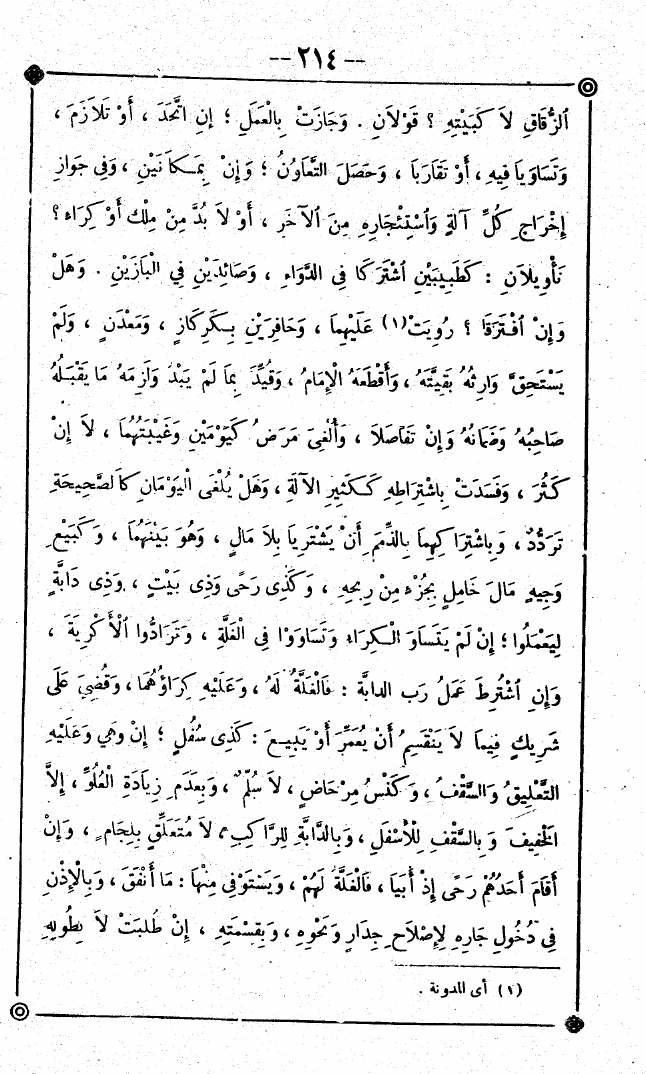 -- ٢١٤ --
اُلزُّقَاقِ لاَ كَبَيْتِهِ ؟ قَوْلاَنِ . وَجَازَتْ بِالْعَمَلِ ؛ إنِ اتَّحَدَ ، أَوْ تَلاَزَمَ ،
وَتَسَاوَيَا فِيهِ ، أَوْ تَقَارَبَا ، وَحَصَلَ التَّعَاوُنُ ؛ وَإنْ بِمَكاَنَيْنِ ، وَفِى جَوَازِ
إِخْرَاجِ كُلٍّ آلَةً وَاُسْتِئْجَارِهِ مِنَ اُلآخَرِ ، أَوْ لاَ بُدَّ مِنْ مِلْكٍ أَوْ كِرَاءٍ ؟
تَأْوِيلاَنِ : كَطَبِيبَيْنِ اُشْتَرَكاَ فِى الدَّوَاءِ ، وَصَائِدَيْنِ فِي الْبَازَيْنِ . وَهَلْ
وَإِنْ اُفْتَرَقَا ؟ رُوِيَتْ (١) عَلَيْهِمَا ، وَحَافِرَيْنِ بِكَرِكَازٍ ، وَمَعْدَنٍ ، وَلَمْ
يَسْتَحِقَّ وَارِثُهُ بَقِيَّتَهُ ، وَأَقْطَعَهُ الْإِمَامُ ، وَقُيِّدَ بِمَا لَمْ يَبْدُ وَلَزِمَهُ مَا يَقْبَلُهُ
صَاحِبُهُ وَضَمَانُهُ وَإِنْ تَفَاصَلاَ ، وَأُلْغِىَ مَرَضُ كَيَوْمَيْنِ وَغَيْبَتُهُمَا ، لاَ إِنْ
كَثُرَ ، وَفَسَدَتْ بِاشْتِرَاطِهِ كَكَثِيرِ الآلَةِ ، وَهَلْ يُلْغَى الْيَوْمَانِ كاَلصَّحِيحَةِ
تَرَدُّدٌ ، وَبِاشْتِرَاكِهِمَا بِالذِّمَمِ أَنْ يَشْتَرِيَا بِلاَ مَالٍ ، وَهُوَ بَيْنَهُمَا ، وَكَبَيْعِ
وَجِيهٍ مَالَ خَامِلٍ بِجُزْءٍ مِنْ رِبْحِهِ ، وَكَذِى رَحًى وَذِى بَيْتٍ ، وَذِى دَابَّةٍ
لِيَعْمَلُوا ؛ إِنْ لَمْ يَتَسَاوَ الْكِرَاءُ وَتَسَاوَوْا فِى الْغَلَّةِ ، وَتَرَادُّوا اُلْأَكْرِيَةَ ،
وَإِنِ اُشْتُرِطَ عَمَلُ رَبِ الدابَّة : فَالْغَلَّةُ لَهُ ، وَعَلَيْهِ كِرَاؤُهُمَا ، وَقُضِىَ عَلَى
شَرِيكٍ فِيمَا لاَ يَنْقَسِمُ أَنْ يُعَمِّرَ أَوْ يَبِيعَ : كَذِى سُفْلٍ ؛ إِنْ وَهَي وَعَلَيْهِ
التَّعْلِيقُ وَالسَّقْفُ ، وَكَنْسُ مِرْحَاضٍ ، لاَ سُلَّمٌ ، وَبِعَدَمِ زِيَادَةِ الْعُلُوِّ ، إِلاَّ
الْخَفِيفَ وَبِالسَّقْفِ لِلْأَسْفَلِ ، وَبِالدَّابَّةِ لِلرَّاكِبِ ، لاَ مُتَعَلِّقٍ بِلِجَامٍ ، وَإِنْ
أَقَامَ أَحَدُهُمْ رَحًى إِذْ أَبَيَا ، فَالْغَلَّةُ لَهُمْ ، وَيَسْتَوْفِى مِنْهَا : مَا أَنْفَقَ ، وَبِالْإِذْنِ
فِى دُخُولِ جَارِهِ لِإِصْلاَحِ جِدَارٍ وَنَحْوِهِ ، وَبِقِسْمَتِهِ ، إِنْ طُلِبَتْ لاَ بِطُولِهِ
(١) أى المدونة .